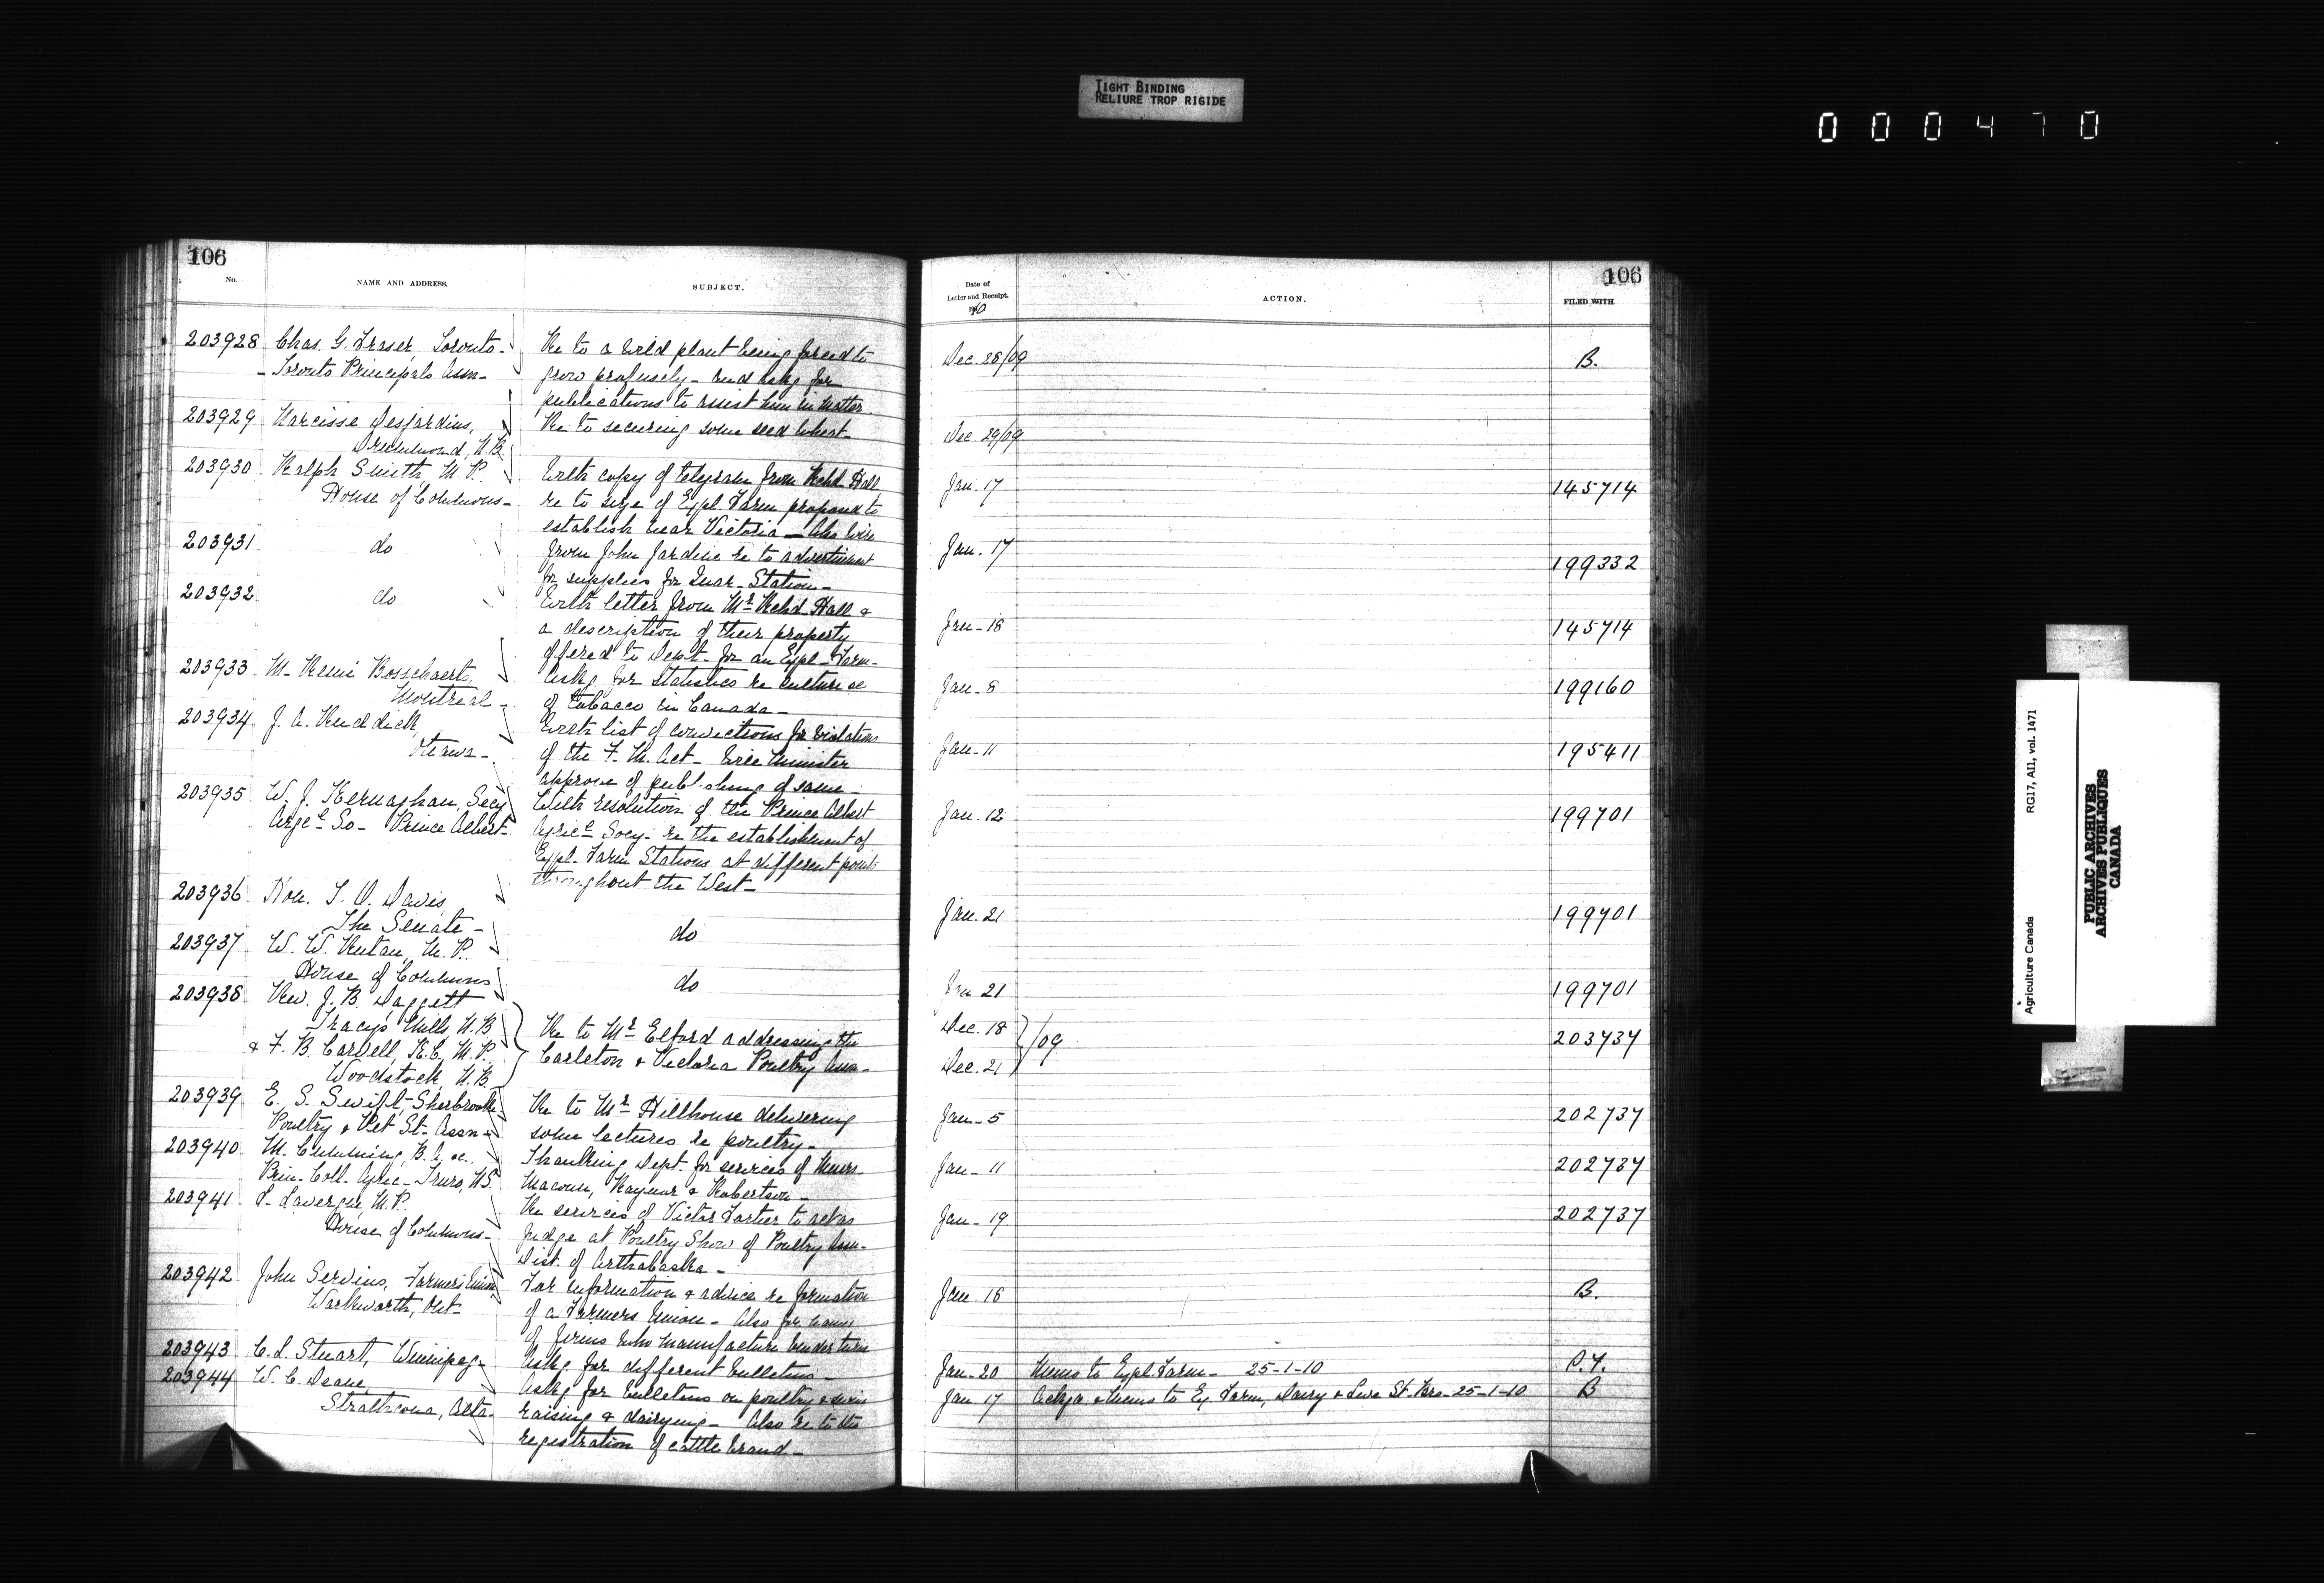 TIGHT BINDING
RELIURE TROP RIGIDE
000470
106
No.
NAME AND ADDRESS.
SUBJECT.
203928 Chas. G. Fraser, Toronto- Re to a wild plant being forced to
- Toronto Principals Assn- grow profusely - and askg for
publications to assist him in matter.
203929 Narcisse Desjardins, Re to securing some seed wheat-
Drummond, N.B.
203930 Ralph Smith, M.P. With copy of telegram from Richd Hall
House of Commons- re to size of Expl. Farm proposed to
establish near Victoria - Also wire
203931 do from John Jardine re to advertisement
for supplies for Quar. Station-
203932 do With letter from Mr. Richd Hall &
a description of their property
offered to Dept. for an Expl. Farm-
203933 M. Remi Bosschaerts Askg. for statistics re culture &c
Montreal- of tobacco in Canada-
203934 J. A. Ruddick, With list of convictions for violations
Ottawa- of the F. M. Act- Will Minister
approve of publishing of same-
203935 W. J. Kernaghan, Secy With resolution of the Prince Albert
Agrcl So- Prince Albert- Agricl Socy- re the establishment of
Expl. Farm Stations at different points
throughout the West-
203936 Hon. T. O. Davis,
The Senate- do
203937 W. W. Rutan, M.P.
House of Commons do
203938 Rev. J. B. Daggett
Tracy's Mills, N.B. Re to Mr. Elford addressing the
& F. B. Carvell, K.C., M.P. Carleton & Victoria Poultry Assn-
Woodstock, N.B.
203939 E. S. Swift, Sherbrooke Re to Mr. Hillhouse delivering
Poultry & Pet St. Assn- some lectures re poultry-
203940 M. Cumming, B.A. &c. Thanking Dept. for services of Messrs
Prin. Coll. Agric- Truro, N.S. Macoun, Raynor & Robertson-
203941 L. Lavergne, M.P. Re services of Victor Fortier to act as
House of Commons- judge at Poultry Show of Poultry Assn-
Dist. of Arthabaska-
203942 John Servius, Farmers Union, For information & advice re formation
Warkworth, Ont- of a Farmers Union- Also for names
of firms who manufacture binder twine
203943 C. L. Stuart, Winnipeg- Askg for different bulletins-
203944 W. C. Deane, Askg for bulletins on poultry & swine
Strathcona, Alta. raising & dairying- Also re to the
registration of cattle brand-
106
Date of
Letter and Receipt.
1910
ACTION.
FILED WITH
Dec. 28/09 B.
Dec. 29/09
Jan. 17 145714
Jan. 17 199332
Jan-18 145714
Jan-8 199160
Jan-11 195411
Jan. 12 199701
Jan. 21 199701
Jan 21 199701
Dec. 18 } /09 203737
Dec. 21
Jan-5 202737
Jan-11 202737
Jan-19 202737
Jan. 16 B.
Jan-20 Memo to Expl. Farm- 25-1-10
Jan 17 Ackgd & Memo to Ex. Farm, Dairy & Live St. Brs-25-1-10 B
Agriculture Canada RG17, AII, vol. 1471
PUBLIC ARCHIVES
ARCHIVES PUBLIQUES
CANADA